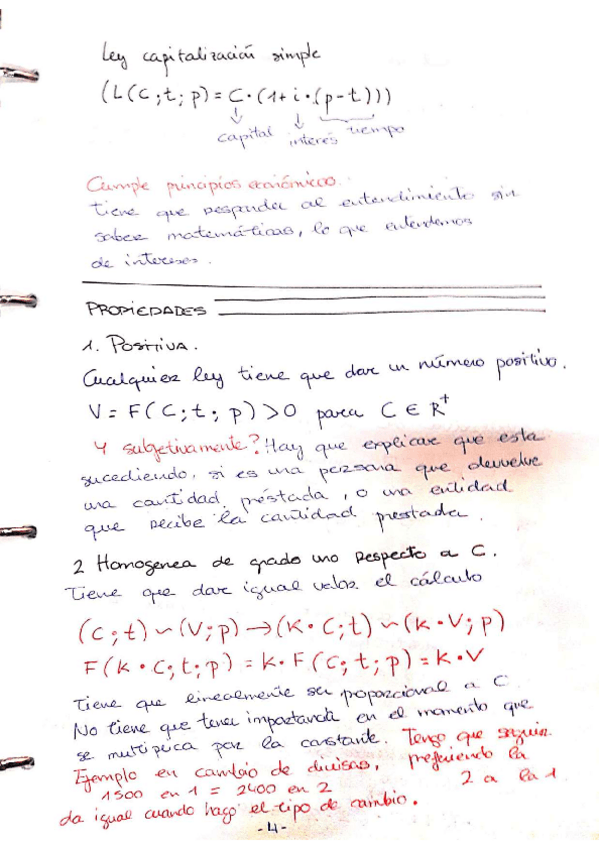 Ley capitalización simple
(L(C;t;p) = C·(1+i·(p-t)))
capital interés tiempo
Cumple principios económicos.
Tiene que responder al entendimiento sin
saber matemáticas, lo que entendemos
de intereses.
PROPIEDADES
1. POSITIVA.
Cualquier ley tiene que dar un número positivo.
V = F(C; t; p) > 0 para C ∈ R⁺
Y subjetivamente? Hay que explicar que esta
sucediendo, si es una persona que devuelve
una cantidad prestada, o una entidad
que recibe la cantidad prestada.
2 Homogenea de grado uno respecto a C.
Tiene que dar igual valor el cálculo
(C;t) ~ (V;p) → (K·C;t) ~ (K·V;p)
F(K·C; t; p) = K·F(C; t; p) = K·V
Tiene que linealmente ser proporcional a C
No tiene que tener importancia en el momento que
se multiplica por la constante. Tengo que seguir
Ejemplo en cambio de divisas, prefiriendo la
1500 en 1 = 2400 en 2 2 a la 1
da igual cuando hago el tipo de cambio.
-4-